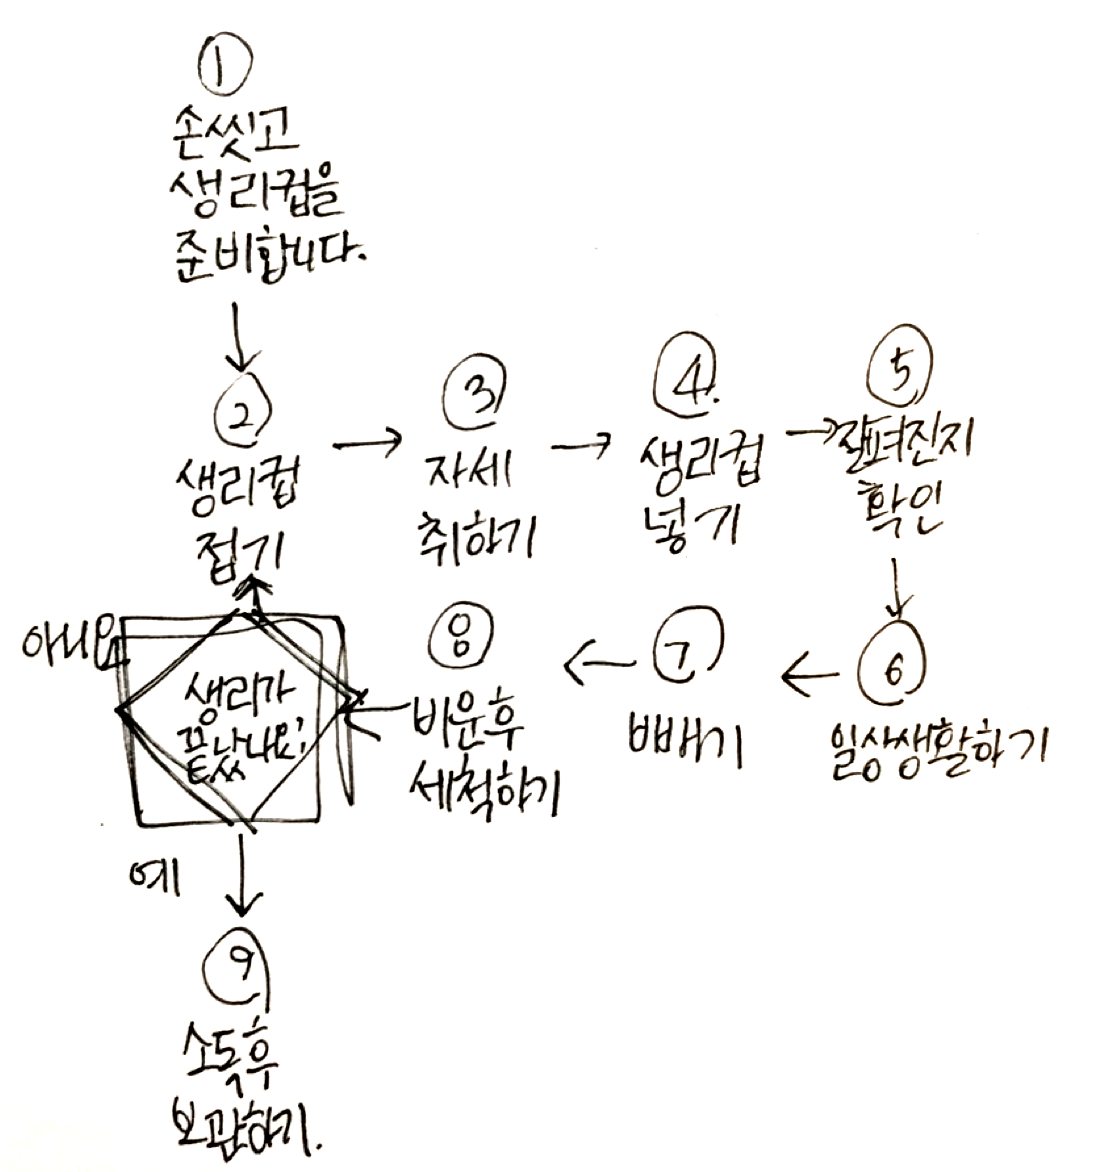 ①
손씻고
생리컵을
준비합니다.
②
생리컵
접기
③
자세
취하기
④.
생리컵
넣기
⑤
잘펴진지
확인
⑥
일상생활하기
⑦
빼기
⑧
비운후
세척하기
생리가
끝났나요?
아니요
예
⑨
소독후
보관하기.